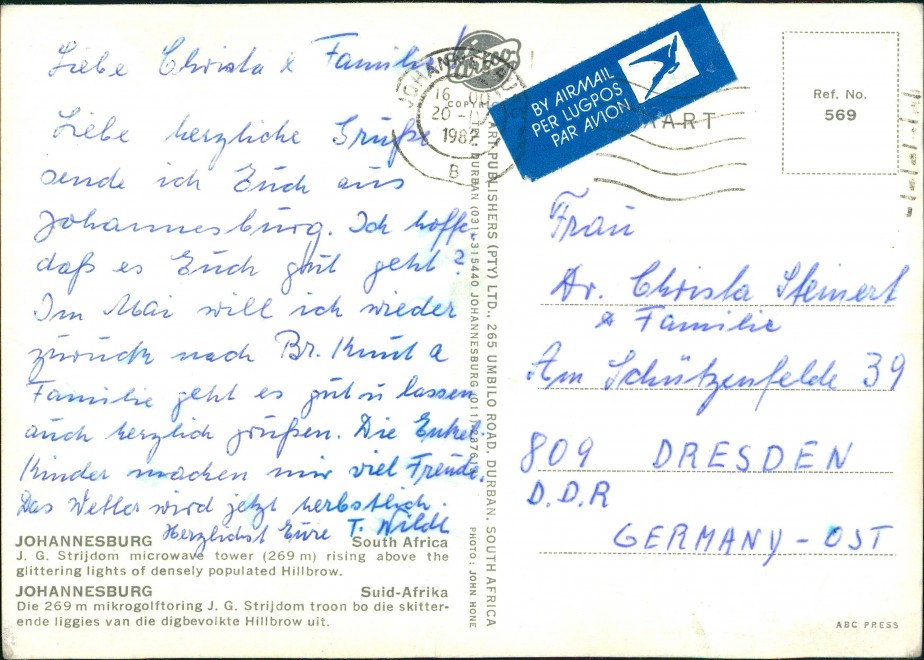 Liebe Christa & Familie!
Liebe herzliche Grüße
sende ich Euch aus
Johannesburg. Ich hoffe,
daß es Euch gut geht?
Im Mai will ich wieder
zurück nach Br. Knut &
Familie geht es gut u lassen
auch herzlich grüßen. Die Enkel-
kinder machen mir viel Freude.
Das Wetter wird jetzt herbstlich.
Herzlichst Eure T. Wilde
JOHANNESBURG South Africa
J. G. Strijdom microwave tower (269 m) rising above the
glittering lights of densely populated Hillbrow.
JOHANNESBURG Suid-Afrika
Die 269 m mikrogolftoring J. G. Strijdom troon bo die skitter-
ende liggies van die digbevolkte Hillbrow uit.
ART PUBLISHERS (PTY) LTD., 265 UMBILO ROAD, DURBAN, SOUTH AFRICA
DURBAN (031) 315440 JOHANNESBURG
PHOTO: JOHN HONE
16
20
1982
B
BY AIRMAIL
PER LUGPOS
PAR AVION
Ref. No.
569
Frau
Dr. Christa Steinert
& Familie
Am Schützenfelde 39
809 DRESDEN
D.D.R
GERMANY - OST
ABC PRESS